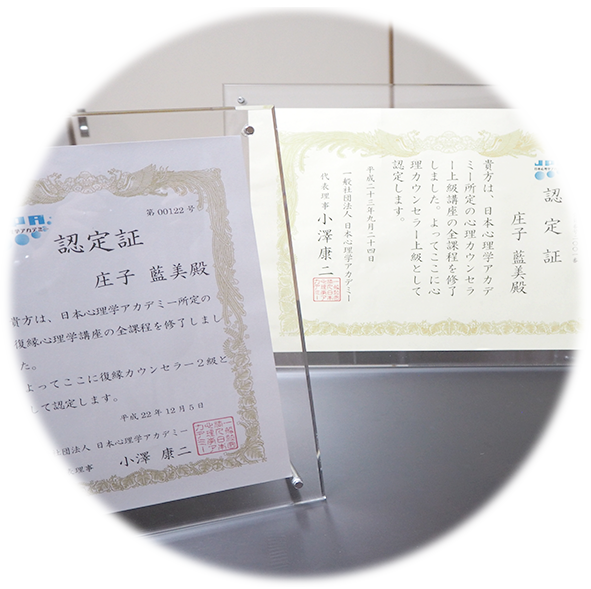 第00122号
認定証
庄子 藍美殿
貴方は、日本心理学アカデミー所定の
復縁心理学講座の全課程を修了しまし
た。
よってここに復縁カウンセラー2級と
して認定します。
平成22年12月5日
社団法人 日本心理学アカデミー
理事 小澤 康二
認定証
庄子 藍美殿
貴方は、日本心理学アカデ
ミー所定の心理カウンセラ
ー上級講座の全課程を修了
しました。よってここに心
理カウンセラー上級として
認定します。
平成二十三年九月二十四日
一般社団法人 日本心理学アカデミー
代表理事 小澤 康二